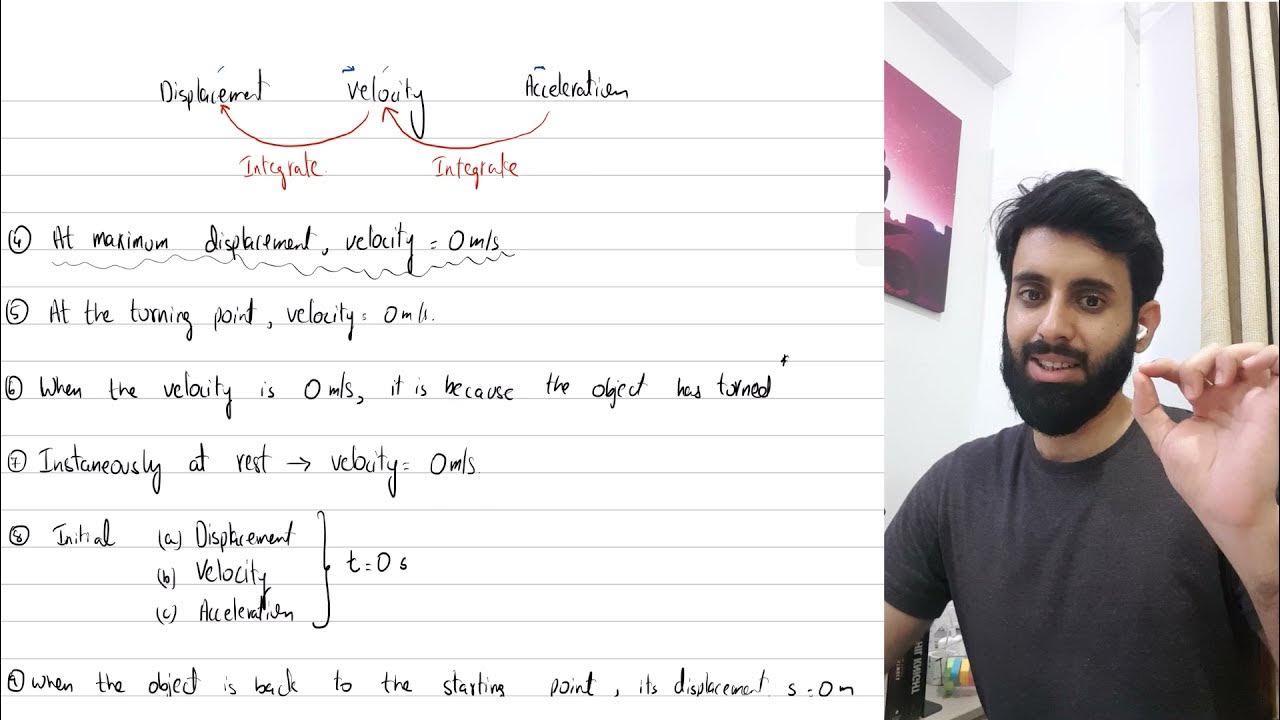 Displacement Velocity Acceleration
Integrate Integrate
④ At maximum displacement, velocity = 0 m/s.
⑤ At the turning point, velocity = 0 m/s.
⑥ When the velocity is 0 m/s, it is because the object has turned *
⑦ Instaneously at rest → velocity = 0 m/s.
⑧ Initial (a) Displacement
(b) Velocity
(c) Acceleration
t = 0 s
⑨ When the object is back to the starting point, its displacement s = 0 m
PHIL KNIGHT